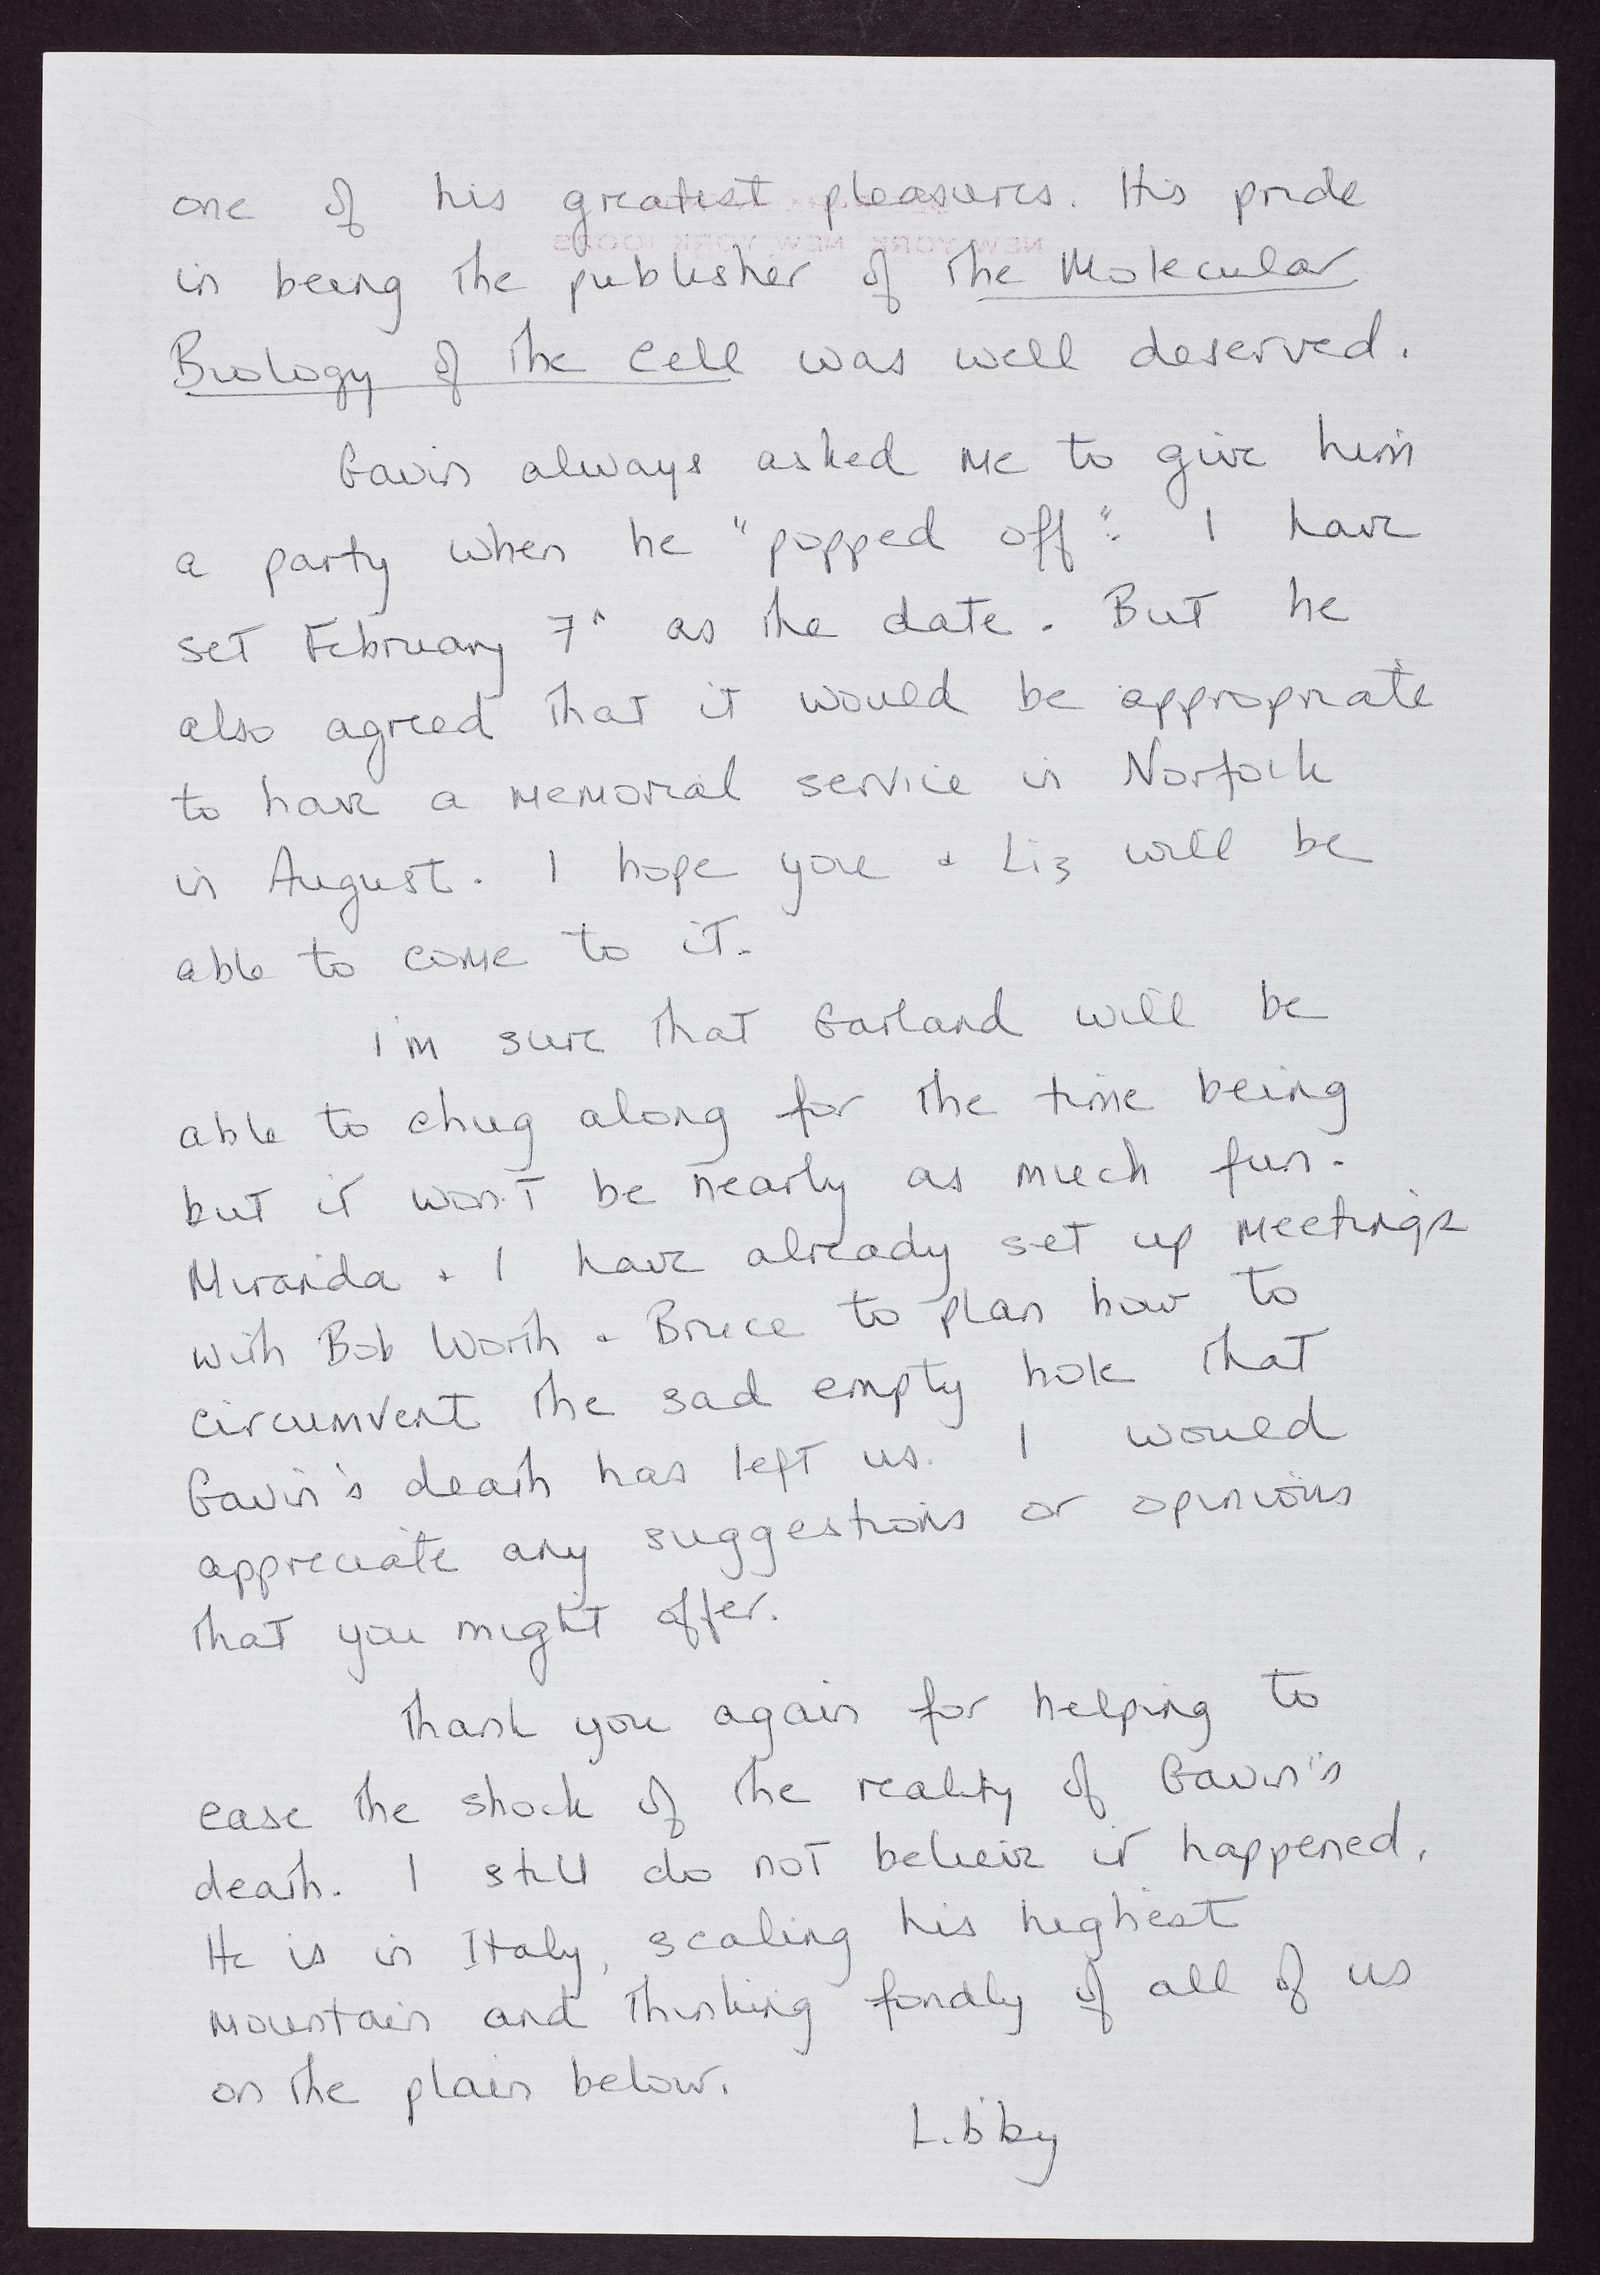 one of his greatest pleasures. His pride
in being the publisher of The Molecular
Biology of the Cell was well deserved.
Gavin always asked me to give him
a party when he "popped off". I have
set February 7th as the date. But he
also agreed that it would be appropriate
to have a memorial service in Norfolk
in August. I hope you + Liz will be
able to come to it.
I'm sure that Garland will be
able to chug along for the time being
but it won't be nearly as much fun.
Miranda + I have already set up meetings
with Bob Worth + Bruce to plan how to
circumvent the sad empty hole that
Gavin's death has left us. I would
appreciate any suggestions or opinions
that you might offer.
Thank you again for helping to
ease the shock of the reality of Gavin's
death. I still do not believe it happened.
He is in Italy, scaling his highest
mountain and thinking fondly of all of us
on the plain below.
Libby